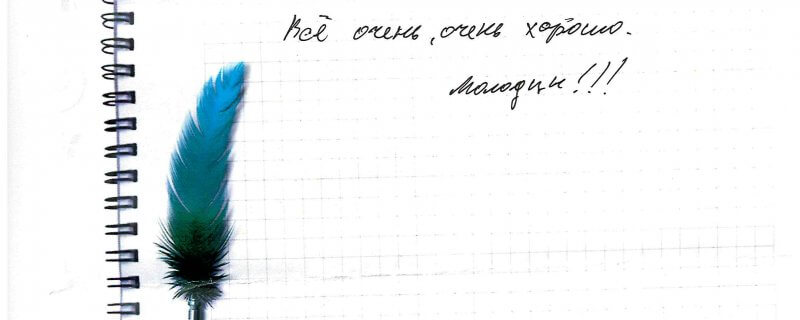 Всё очень, очень хорошо.
Молодцы!!!